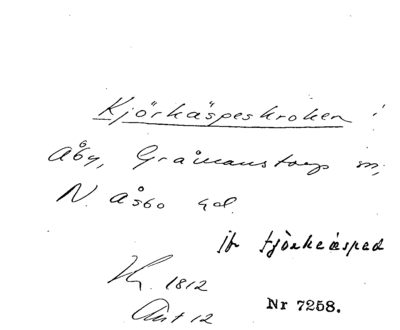 Kjörkäspeskroken i
Åby, Gråmanstorps sn,
N. Åsbo hd.
jfr kjörkeäsped
Hy. 1812
Akt 12
Nr 7258.